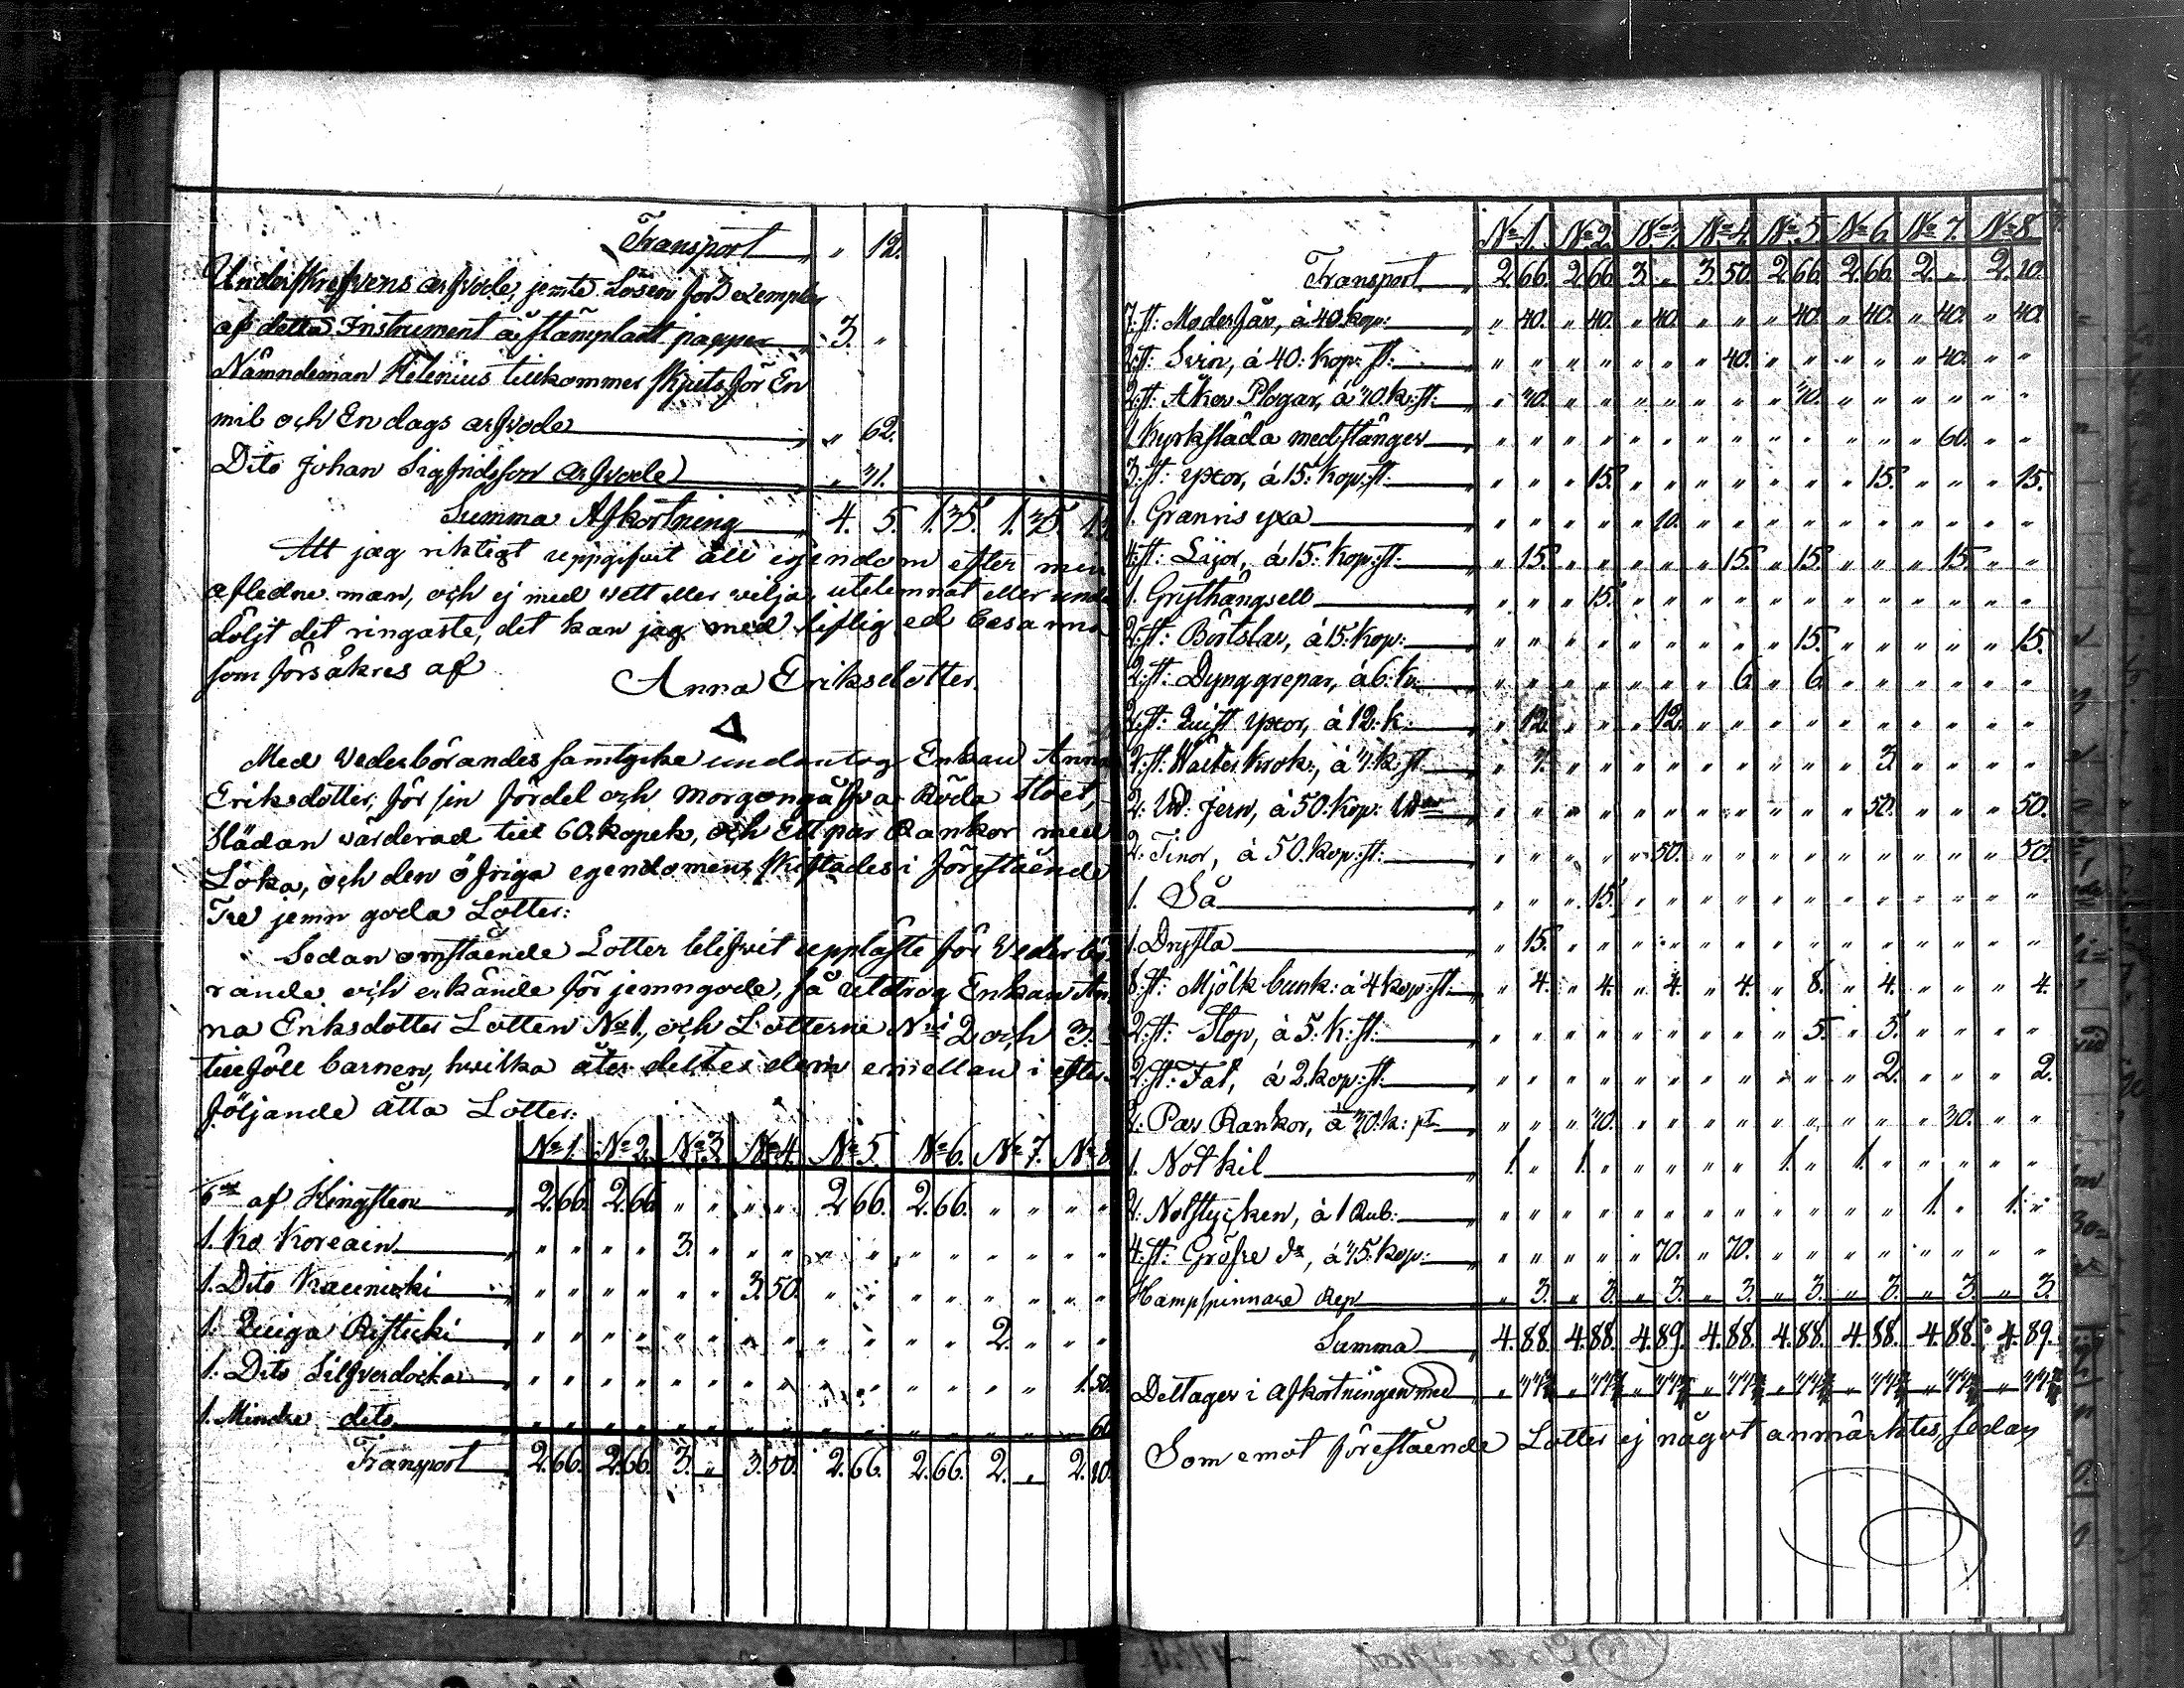 Transport „ 12.
Underskrefvens arfvode, jemte Lösen för 3 exemplar
af detta Instrument å stämpladt papper „ 3. „
Nämndeman Helenius tillkommer skjuts för En
mil och En dags arfvode „ „ 62.
Dito Johan Sigfridsson arfvode „ 31.
Summa Afkortning 4. 5. 1.35. 1.35.
Att jag riktigt uppgifvit all egendom efter min
afledne man, och ej med vett eller vilja, utelemnat eller und
döljt det ringaste, det kan jag med liflig ed besanna
som försäkres af
Anna Eriksdotter.
Med Vederbörandes samtycke undantog Enkan Anna
Eriksdotter, för sin fördel och Morgongåfva Röda Stoet,
Slädan värderad till 60. kopek, och Ett par Rankor med
Loka, och den öfriga egendomen skiftades i förestående
Tre jemn goda Lotter:
Sedan omstående Lotter blifvit uppläste för Vederbö
rande och erkände för jemngode, så utdrog Enkan An
na Eriksdotter Lotten No 1., och Lotterne No 2 och 3.
tillföll barnen, hvilka åter deltes dem emellan i efter
följande åtta Lotter:
No 1. No 2. No 3. No 4. No 5. No 6. No 7. No 8
af Hingsten 2.66. 2.66 „ „ „ „ 2.66. 2.66. „ „ „ „
1. Ko Koreain „ „ „ „ 3. „ „ „ „ „ „ „ „ „ „ „
1. Dito Kaunicki „ „ „ „ „ „ 3.50. „ „ „ „ „ „ „ „
1. Quiga Risticki „ „ „ „ „ „ „ „ „ „ „ „ 2. „ „ „
1. Dito Silfverdocka „ „ „ „ „ „ „ „ „ „ „ „ „ „ 1.50.
1. Mindre dito „ „ „ „ „ „ „ „ „ „ „ „ „ „ „ 60
Transport 2.66. 2.66. 3. „ 3.50. 2.66. 2.66. 2. „ 2.10.
No 1. No 2. No 3. No 4. No 5. No 6. No 7. No 8.
Transport „ 2.66. 2.66. 3. „ 3.50. 2.66. 2.66. 2. „ 2.10.
7. st: Moderfår, á 40. kop: „ 40. „ 40. „ 40. „ „ „ 40. „ 40. „ 40. „ 40.
2. st: Svin, á 40. kop: st: „ „ „ „ „ „ „ 40. „ „ „ „ „ 40. „ „
2. st: Åker Plogar, á 30. k: st: „ 30. „ „ „ „ „ „ „ 30. „ „ „ „ „ „
1. Kyrkslåda med stånger „ „ „ „ „ „ „ „ „ „ „ „ „ 60. „ „
3. st: yxor, á 15. kop: st: „ „ „ 15. „ „ „ „ „ „ „ 15. „ „ „ 15.
1. Granris yxa „ „ „ „ „ 10. „ „ „ „ „ „ „ „ „ „
4. st: Lijor, á 15. kop: st: „ 15. „ „ „ „ „ 15. „ 15. „ „ „ 15. „ „
1. Grythängsell „ „ „ 15. „ „ „ „ „ „ „ „ „ „ „ „
2. st: Bettslar, á 15. kop: „ „ „ „ „ „ „ „ „ 15. „ „ „ „ „ 15.
2. st: Dynggrepar, á 6. k: „ „ „ „ „ „ „ 6. „ 6. „ „ „ „ „ „
2. st: Quist yxor, á 12. k: „ 12. „ „ „ 12. „ „ „ „ „ „ „ „ „ „
2. st: krok:, á 3. k: st „ 3. „ „ „ „ „ „ „ „ „ 3. „ „ „ „
2. Jern, á 50. kop: „ „ „ „ „ „ „ „ „ „ „ 50. „ „ „ 50.
2. Tinor, á 50. kop: st: „ „ „ „ „ 50. „ „ „ „ „ „ „ „ „ 50.
1. Så „ „ „ 15. „ „ „ „ „ „ „ „ „ „ „ „
1. Drysta „ 15. „ „ „ „ „ „ „ „ „ „ „ „ „ „
8. st: Mjölk bunk: á 4 kop: st: „ 4. „ 4. „ 4. „ 4. „ 8. „ 4. „ „ „ 4.
2. st: Stop, á 5. k: st: „ „ „ „ „ „ „ „ „ 5. „ 5. „ „ „ „
2. st: Fat, á 2. kop: st: „ „ „ „ „ „ „ „ „ „ „ 2. „ „ „ 2.
2. Par Rankor, á 30. k: pr „ „ „ 30. „ „ „ „ „ „ „ „ „ 30. „ „
1. Not kil 1. „ 1. „ „ „ „ „ 1. „ 1. „ „ „ „ „
2. Notstycken, á 1 Rub: „ „ „ „ „ „ „ „ „ „ „ „ 1. „ 1. „
4. st: Gröfre do, á 35. kop: „ „ „ „ „ 70. „ 70. „ „ „ „ „ „ „ „
Hampspinnare Rep „ 3. „ 3. „ 3. „ 3. „ 3. „ 3. „ 3. „ 3.
Summa 4.88. 4.88. 4.89. 4.88. 4.88. 4.88. 4.88. 4.89.
Deltager i afkortningen med
Som emot förestående Lotter ej något anmärktes, sedan